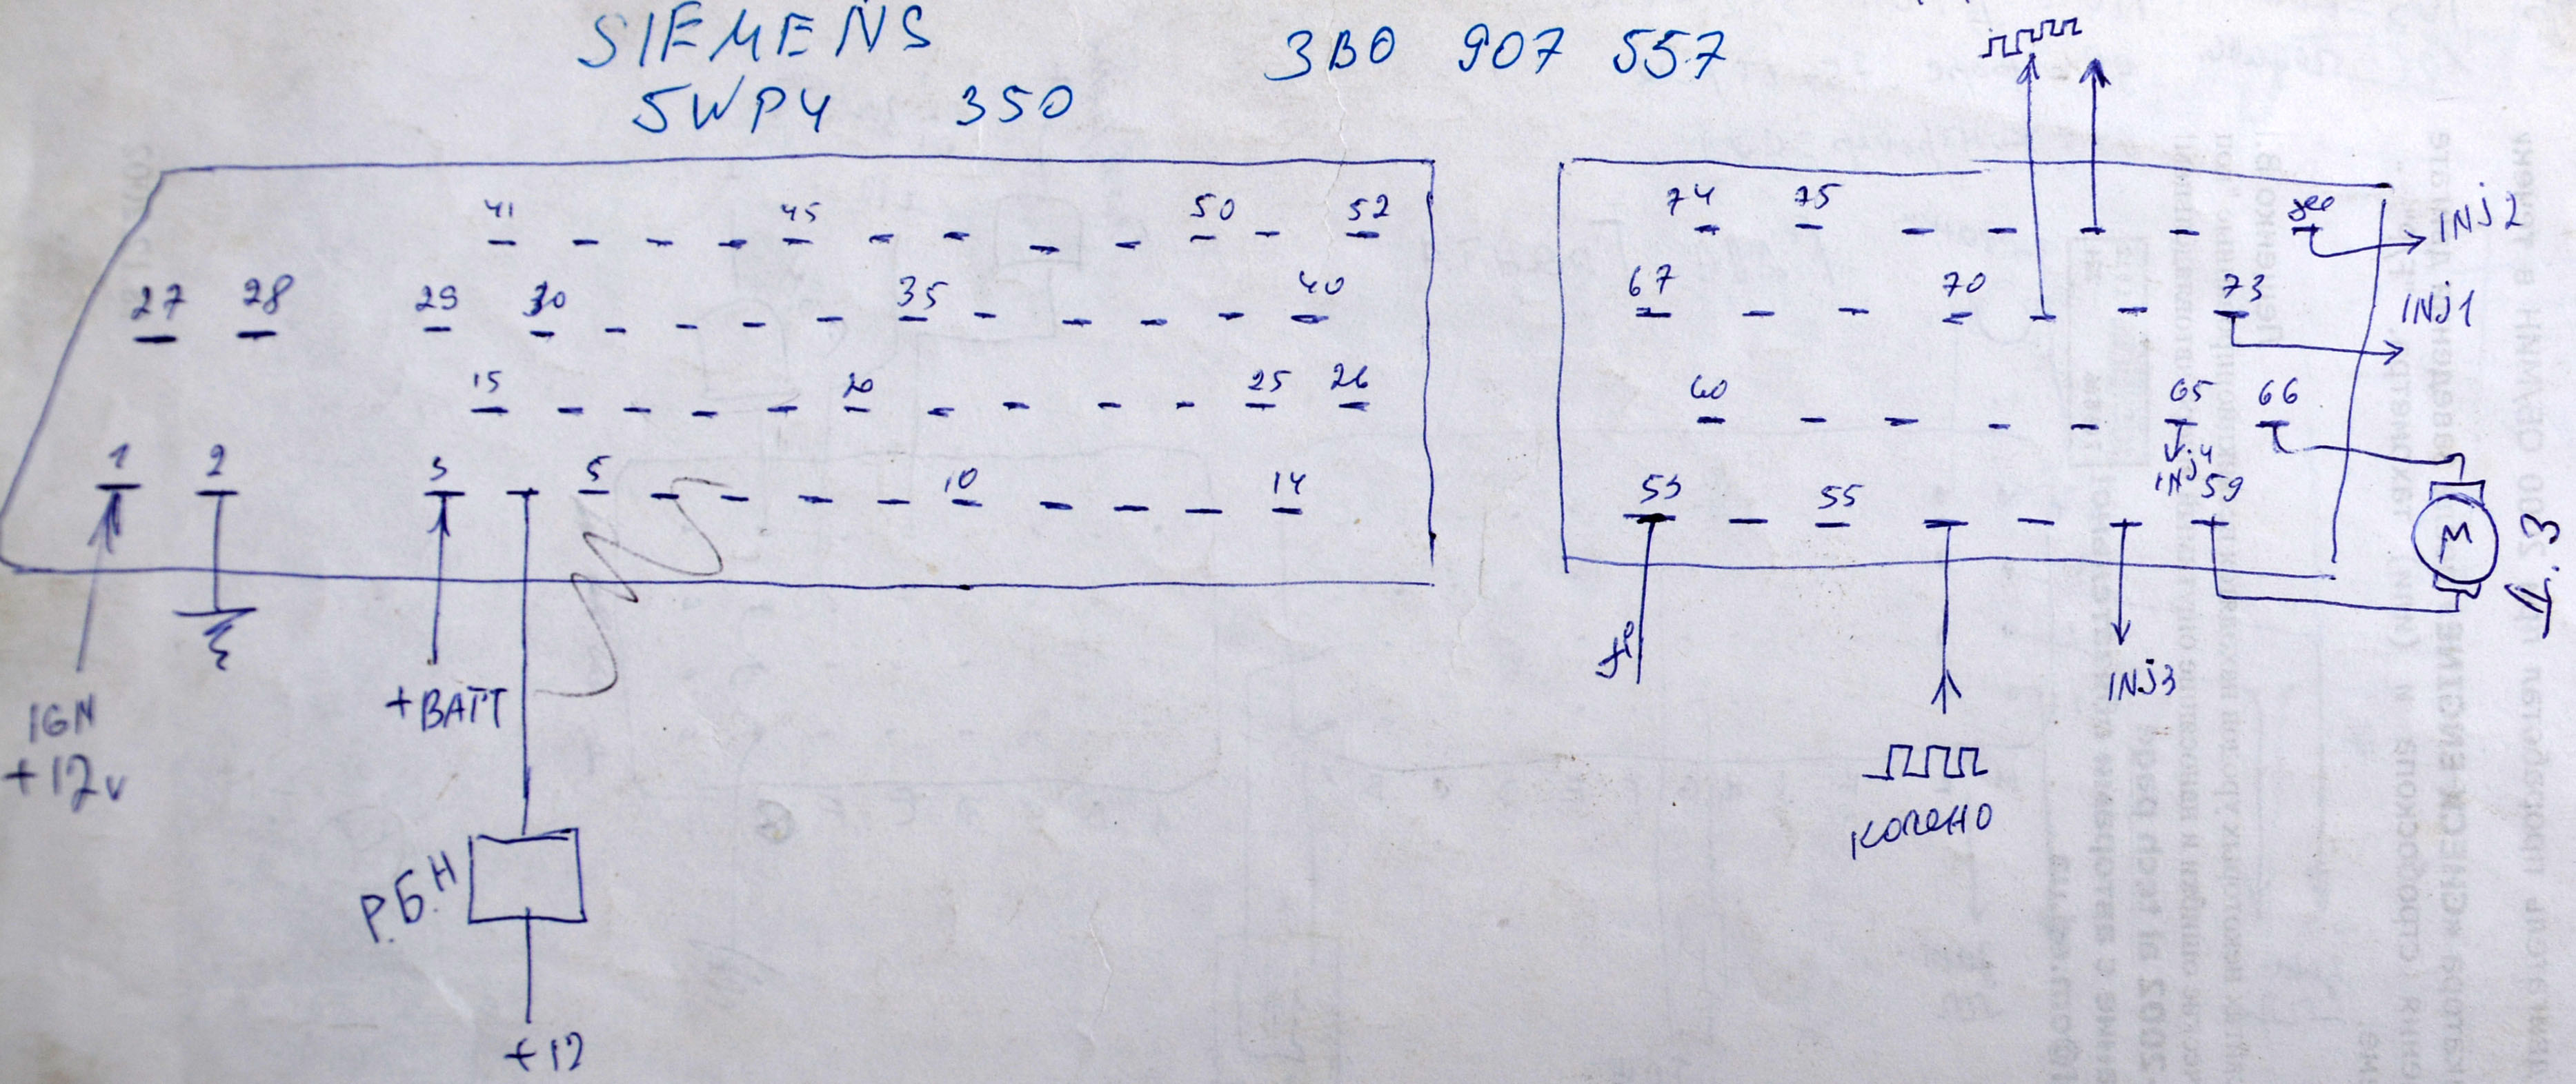 SIEMENS 3B0 907 557
5WP4 350
41 45 50 52
74 75
INJ2
27 28 29 30 35 40
67 70 73
INJ1
15 20 25 26
60 65 66
INJ4
1 2 3 5 10 14
53 55 59
М
Д.З
IGN
+12v
+BATT
INJ3
колено
Р.Б.Н
+12